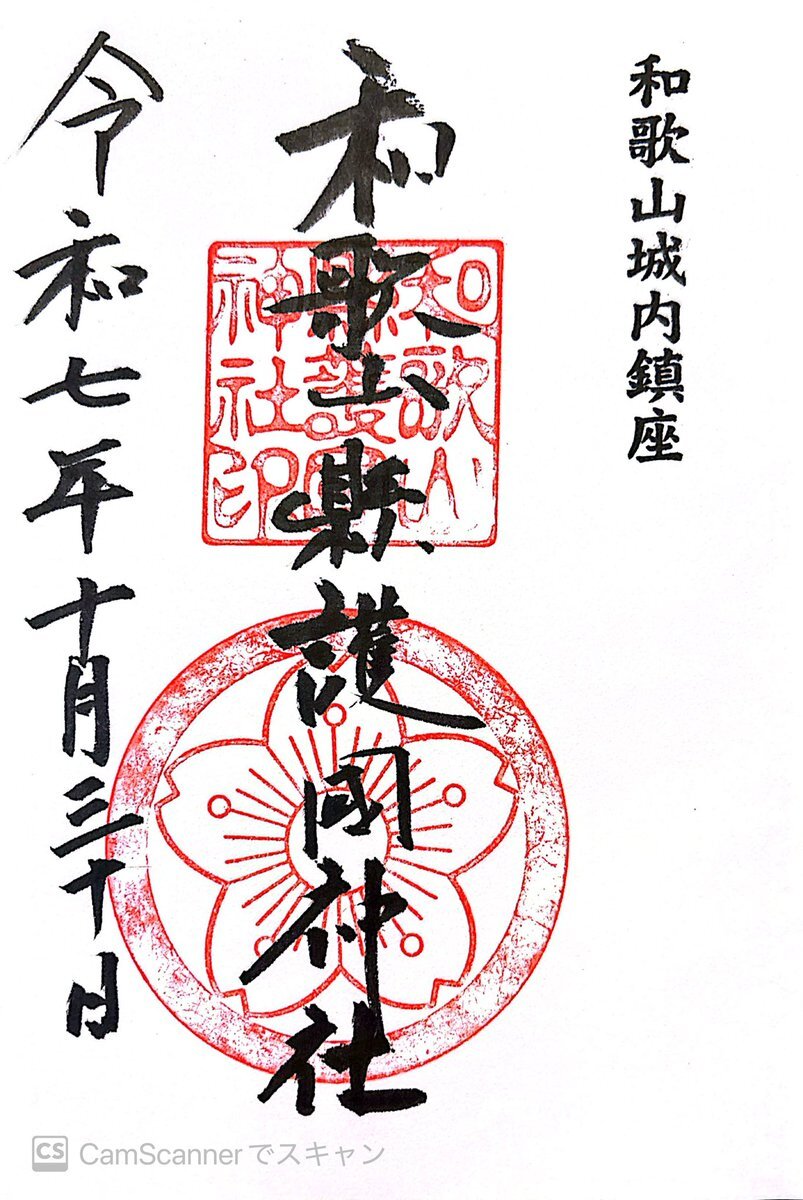 和歌山城内鎮座
和歌山縣護國神社
和歌山
縣護國
神社印
令和七年十月三十日
CS CamScannerでスキャン